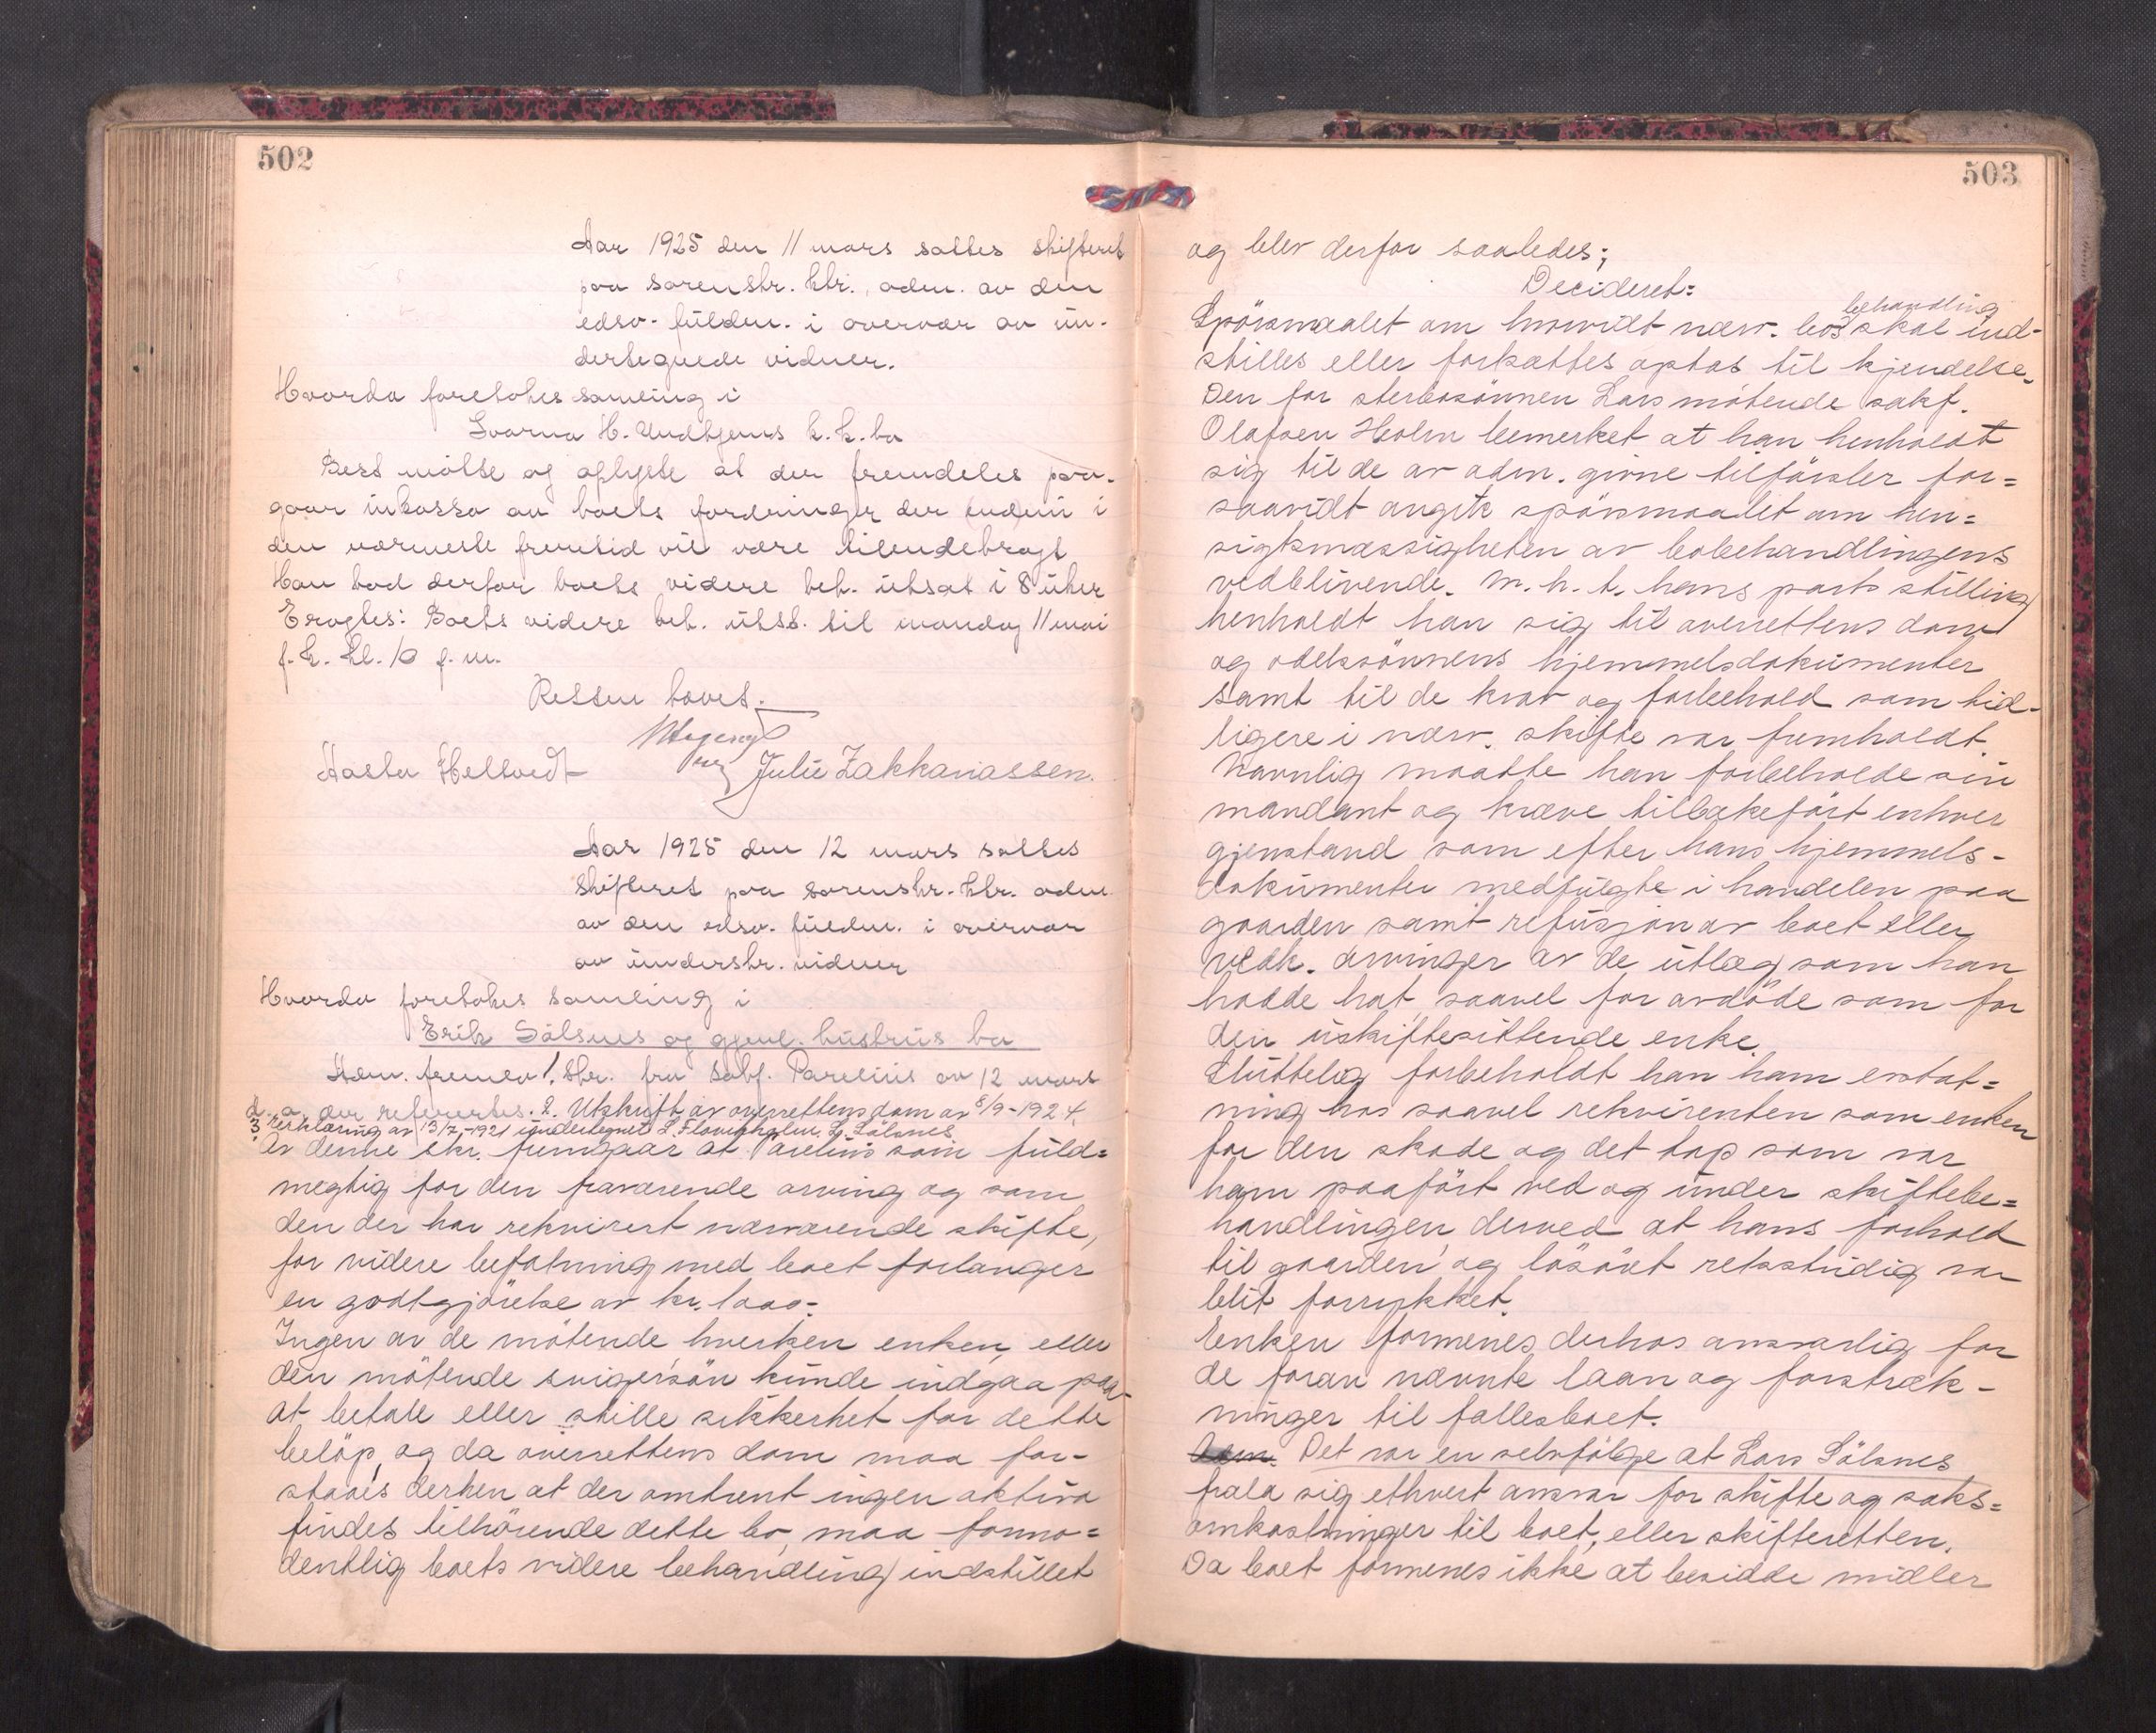 502
Aar 1925 den 11 mars sattes skifteret
paa sorenskr. ktr., adm. av den
edsv. fuldm. i overvær av un-
dertegnede vidner.
Hvorda foretokes samling i
H. k. k. bo
Best. møtte og oplyste at der fremdeles paa-
gaar inkasso av boets fordringer der endnu i
den nærmeste fremtid vil være tilendebragt
Han bad derfor boets videre beh. utsat i 8 uker
Eragtes: Boets videre beh. utst. til mandag 11 mai
f. k. kl. 10 f. m.
Retten hævet.
Aasta Heltvedt Julie Zakkariassen.
Aar 1925 den 12 mars sattes
skifteret paa sorenskr. ktr. adm.
av den edsv. fuldm. i overvær
av underskr. vidner
Hvorda foretokes samling i
Erik Sølsnes og gjenl. hustrus bo
Adm. fremla 1. Skr. fra Sakf. Parelius av 12 mars
d. a. der refertes. 2. Utskrift av overrettens dom av 8/9-1924.
3. Erklæring av 13/7-1921 undertegnet L. L. Sølsnes
Av denne skr. fremgaar at Parelius som fuld=
mægtig for den fraværende arving og som
den der har rekvirert nærværende skifte,
for videre befatning med boet forlanger
en godtgjørelse av kr. 1000.-
Ingen av de møtende hverken enken, eller
den møtende svigersøn kunde indgaa paa
at betale eller stille sikkerhet for dette
beløp, og da overrettens dom maa for-
staaes derhen at der omtrent ingen aktiva
findes tilhørende dette bo, maa formo=
dentlig boets videre behandling indstillet
503
og blev derfor saaledes;
Decideret:
behandling
Spørsmaalet om hvorvidt nærv. bos skal ind-
stilles eller fortsættes optas til kjendelse.
Den for sterbosønnen Lars møtende sakf.
Olafsen Holm bemerket at han henholdt
sig til de av adm. givne tilførsler for=
saavidt angik spørsmaalet om hen=
sigtsmæssigheten av bobehandlingens
vedblivende. M. h. t. hans parts stilling
henholdt han sig til overrettens dom
og odelssønnens hjemmelsdokumenter
samt til de krav og forbehold som tid-
ligere i nærv. skifte var fremholdt.
Navnlig maatte han forbeholde sin
mandant og kræve tilbakeført enhver
gjenstand som efter hans hjemmels-
dokumenter medfulgte i handelen paa
gaarden samt refusjon av boet eller
vedk. arvinger av de utlæg som han
hadde hat, saavel for avdøde som for
den uskiftesittende enke.
Sluttelig forbeholdt han ham erstat=
ning hos saavel rekvirenten som enken
for den skade og det tap som var
ham paaført ved og under skiftebe=
handlingen derved at hans forhold
til gaarden og løsøret retsstridig var
blit forrykket.
Enken formenes derhos ansvarlig for
de foran nævnte laan og forstræk-
ninger til fællesboet.
Adm. Det var en selvfølge at Lars Sølsnes
frala sig ethvert ansvar for skifte og saks=
omkostninger til boet, eller skifteretten.
Da boet formenes ikke at besidde midler